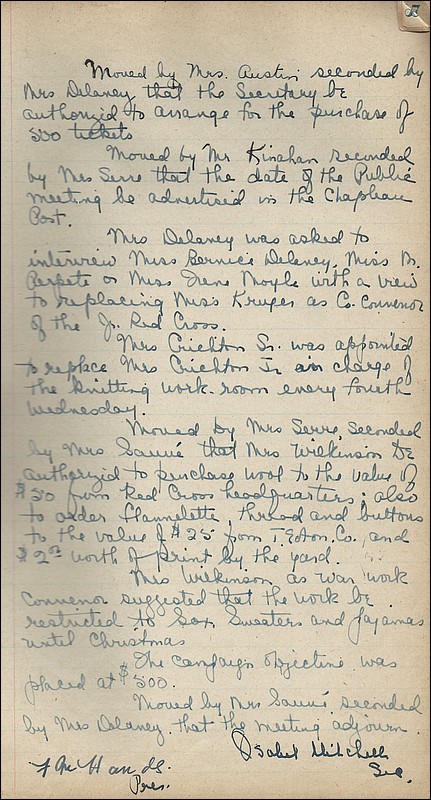 Moved by Mrs. Austin seconded by
Mrs Delaney that the Secretary be
authorized to arrange for the purchase of
500 tickets
Moved by Mr Kinahan seconded
by Mrs Serre that the date of the Public
meeting be advertised in the Chapleau
Post.
Mrs Delaney was asked to
interview Miss Bernice Delaney, Miss M.
Perpete or Miss Irene Moyle with a view
to replacing Miss Kruger as Co. Convenor
of the Jr. Red Cross.
Mrs Crichton Sr. was appointed
to replace Mrs Crichton Jr in charge of
the knitting work-room every fourth
Wednesday.
Moved by Mrs Serre, seconded
by Mrs Sauvé that Mrs Wilkinson be
authorized to purchase wool to the value of
$50 from Red Cross headquarters; also
to order flannelette, thread and buttons
to the value of $25 from T. Eaton. Co. and
$2.00 worth of print by the yard.
Mrs Wilkinson as war work
Convenor suggested that the work be
restricted to Sox Sweaters and Pajamas
until Christmas
The campaign objective was
placed at $500.
Moved by Mrs Sauvé, seconded
by Mrs Delaney that the meeting adjourn.
Isabel Mitchell
Sec.
Hands.
Pres.